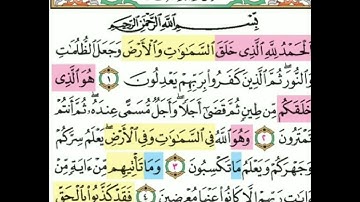 بِسْمِ اللَّهِ الرَّحْمَٰنِ الرَّحِيمِ
الْحَمْدُ لِلَّهِ الَّذِي خَلَقَ السَّمَاوَاتِ وَالْأَرْضَ وَجَعَلَ الظُّلُمَاتِ
وَالنُّورَ ۖ ثُمَّ الَّذِينَ كَفَرُوا بِرَبِّهِمْ يَعْدِلُونَ ١ هُوَ الَّذِي
خَلَقَكُمْ مِنْ طِينٍ ثُمَّ قَضَىٰ أَجَلًا ۖ وَأَجَلٌ مُسَمًّى عِنْدَهُ ۖ ثُمَّ أَنْتُمْ
تَمْتَرُونَ ٢ وَهُوَ اللَّهُ فِي السَّمَاوَاتِ وَفِي الْأَرْضِ ۖ يَعْلَمُ سِرَّكُمْ
وَجَهْرَكُمْ وَيَعْلَمُ مَا تَكْسِبُونَ ٣ وَمَا تَأْتِيهِمْ مِنْ آيَةٍ مِنْ
آيَاتِ رَبِّهِمْ إِلَّا كَانُوا عَنْهَا مُعْرِضِينَ ٤ فَقَدْ كَذَّبُوا بِالْحَقِّ